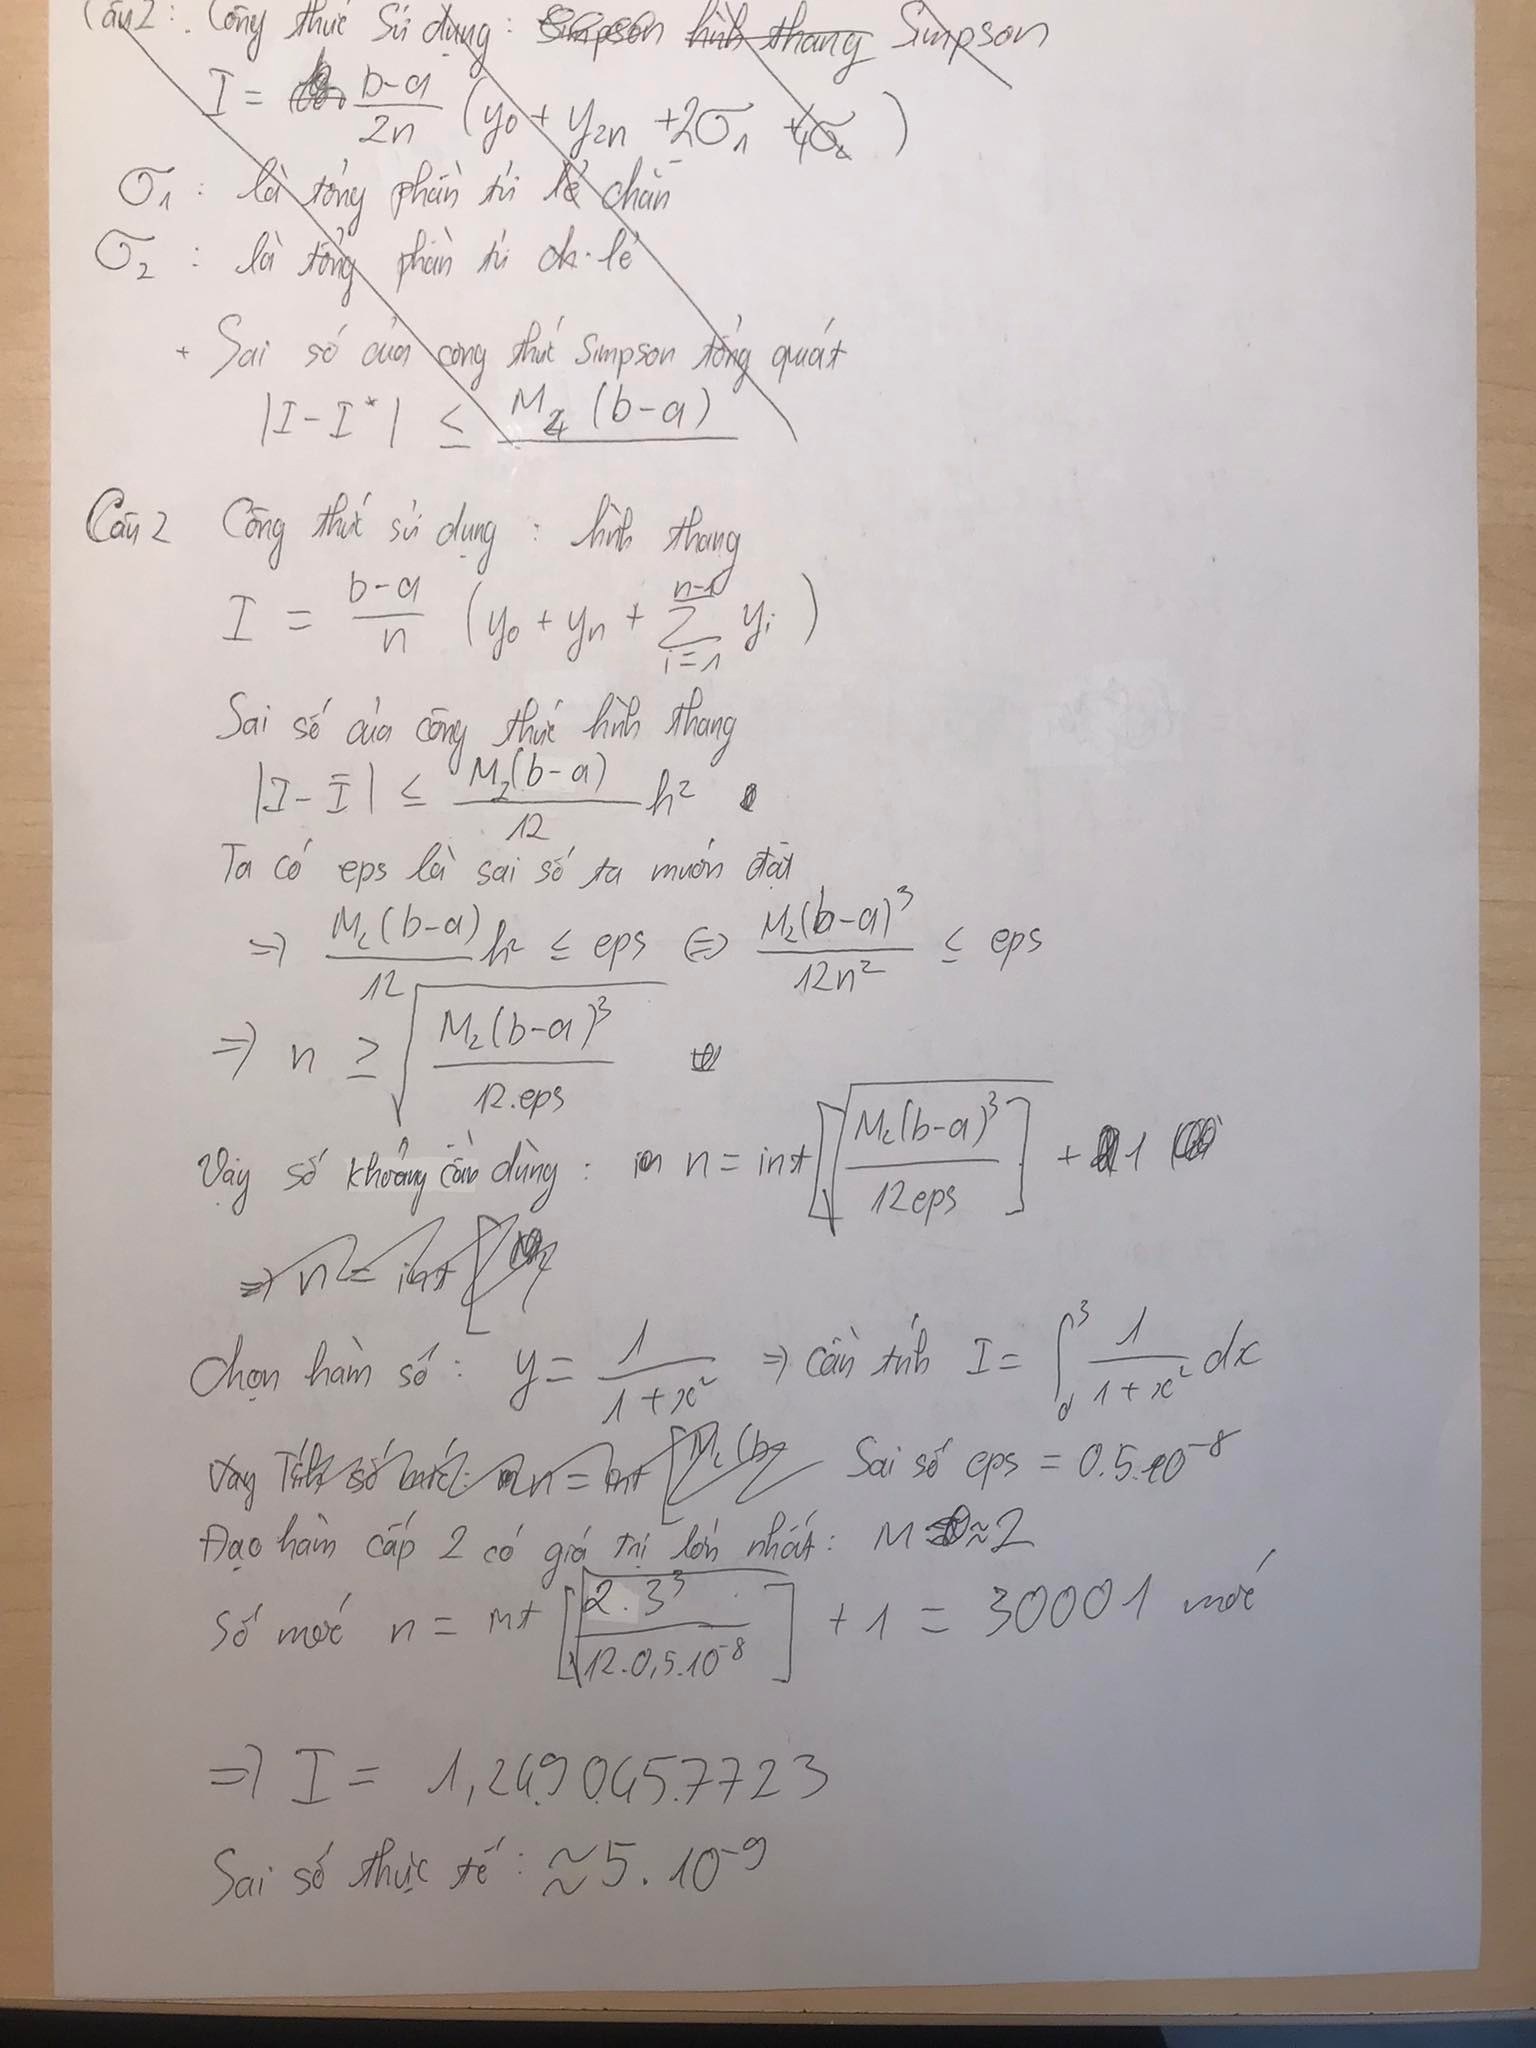 Câu 2: Công thức sử dụng: Simpson hình thang Simpson
I = b-a/2n (y0 + y2n + 2σ1 + 4σ2)
σ1: là tổng phần tử lẻ chẵn
σ2: là tổng phần tử ch lẻ
+ Sai số của công thức Simpson tổng quát
|I - I*| ≤ M4 (b-a)
Câu 2 Công thức sử dụng: hình thang
I = b-a/n (y0 + yn + ∑_{i=1}^{n-1} yi)
Sai số của công thức hình thang
|I - Ī| ≤ M2(b-a)/12 h²
Ta có eps là sai số ta muốn đặt
⇒ M2(b-a)/12 h² ≤ eps ⇔ M2(b-a)³/12n² ≤ eps
⇒ n ≥ √(M2(b-a)³/12.eps)
Vậy số khoảng cần dùng: n = int[√(M2(b-a)³/12eps)] + 1
⇒ n = int [M2
Chọn hàm số: y = 1/1+x² ⇒ cần tính I = ∫_0^3 1/1+x² dx
Vậy Tính số bước: n = int [M2(b- Sai số eps = 0.5.10⁻⁸
Đạo hàm cấp 2 có giá trị lớn nhất: M ≈ 2
Số mốc n = int [√(2.3³/12.0,5.10⁻⁸)] + 1 = 30001 mốc
⇒ I = 1,249.045.7723
Sai số thực tế: ≈ 5.10⁻⁹